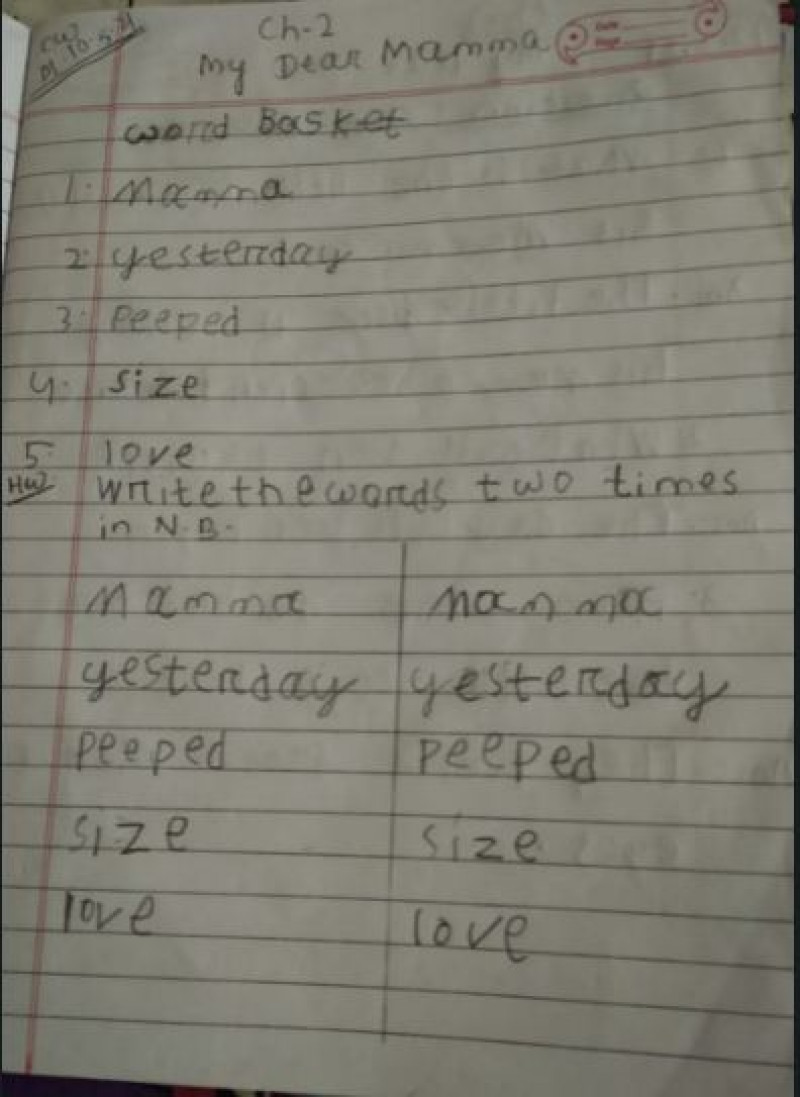 CW
Ch-2
D 10.5.21
My Dear Mamma
word Basket
1. Mamma
2. yesterday
3. Peeped
4. size
5. love
HW write the words two times
in N.B.
Mamma Mamma
yesterday yesterday
peeped peeped
size size
love love